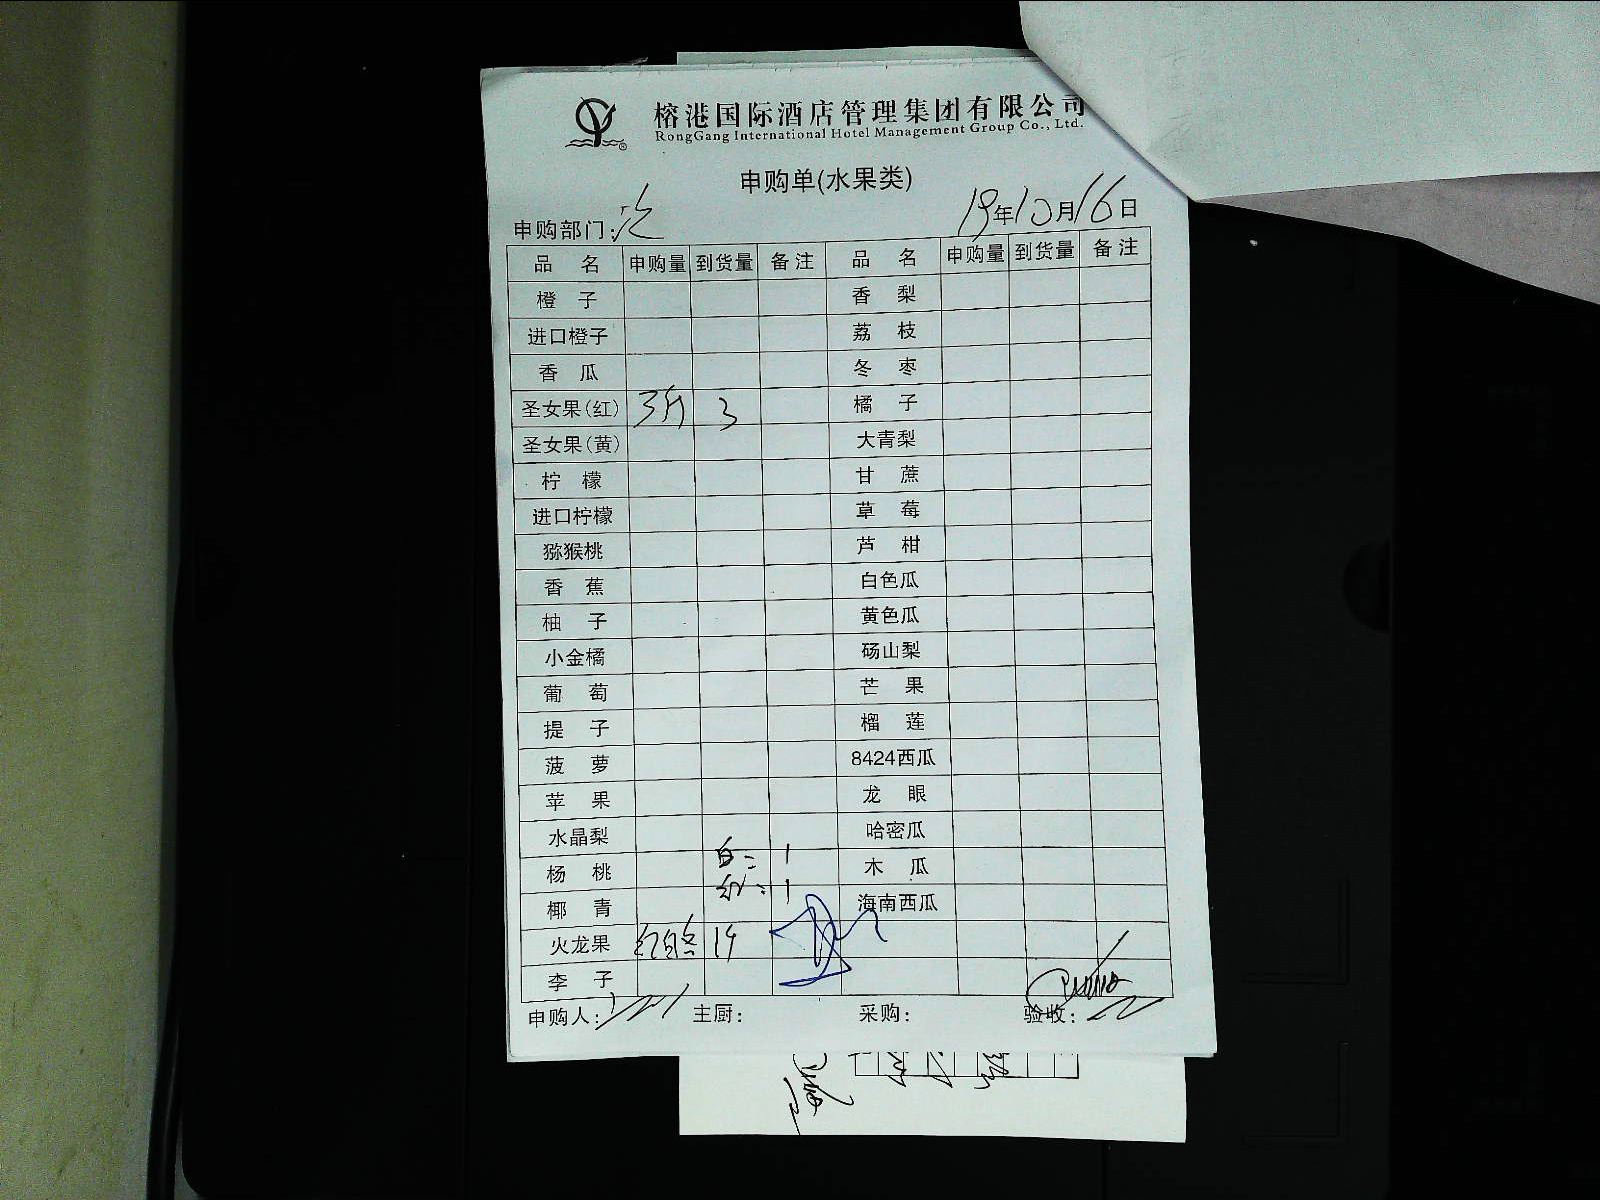 榕港国际酒店管理集团有限公司
RongGang International Hotel Management Group Co., Ltd.
申购单(水果类)
申购部门: 19年10月16日
品名 申购量 到货量 备注 品名 申购量 到货量 备注
橙子 香梨
进口橙子 荔枝
香瓜 冬枣
圣女果(红) 3斤 3 橘子
圣女果(黄) 大青梨
柠檬 甘蔗
进口柠檬 草莓
猕猴桃 芦柑
香蕉 白色瓜
柚子 黄色瓜
小金橘 砀山梨
葡萄 芒果
提子 榴莲
菠萝 8424西瓜
苹果 龙眼
水晶梨 哈密瓜
白: 1
杨桃 木瓜
红: 1
椰青 海南西瓜
火龙果 红白各
李子
申购人: 主厨: 采购: 验收: